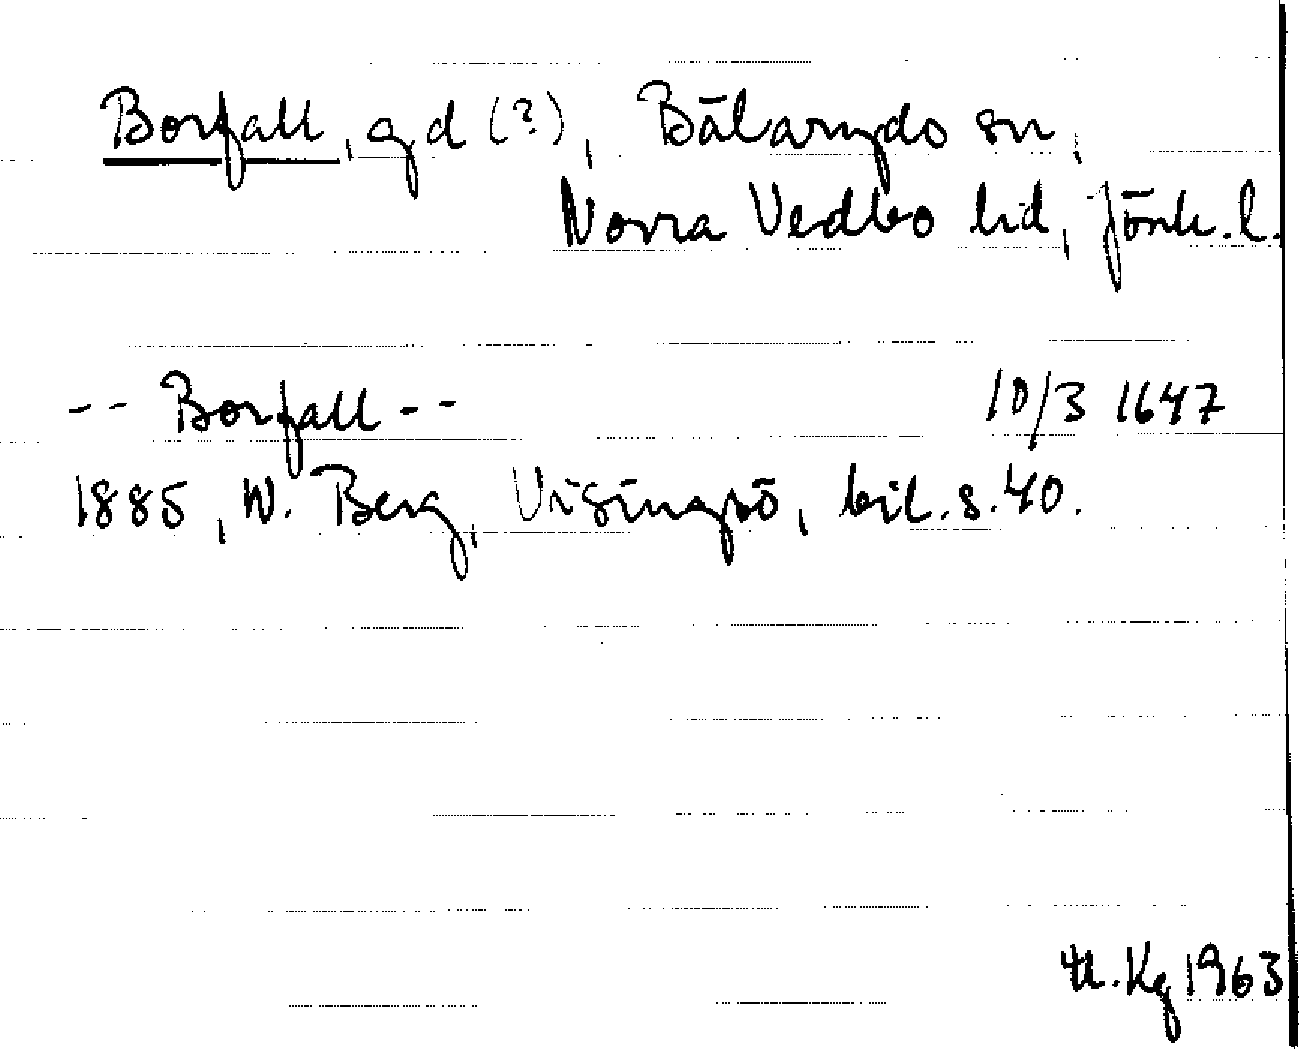 Borfall, gd (?), Bälaryds sn,
Norra Vedbo hd, Jönk. l.
-- Borfall -- 10/3 1647
1885, W. Berg, Visingsö, bil. s. 40.
Kg 1963